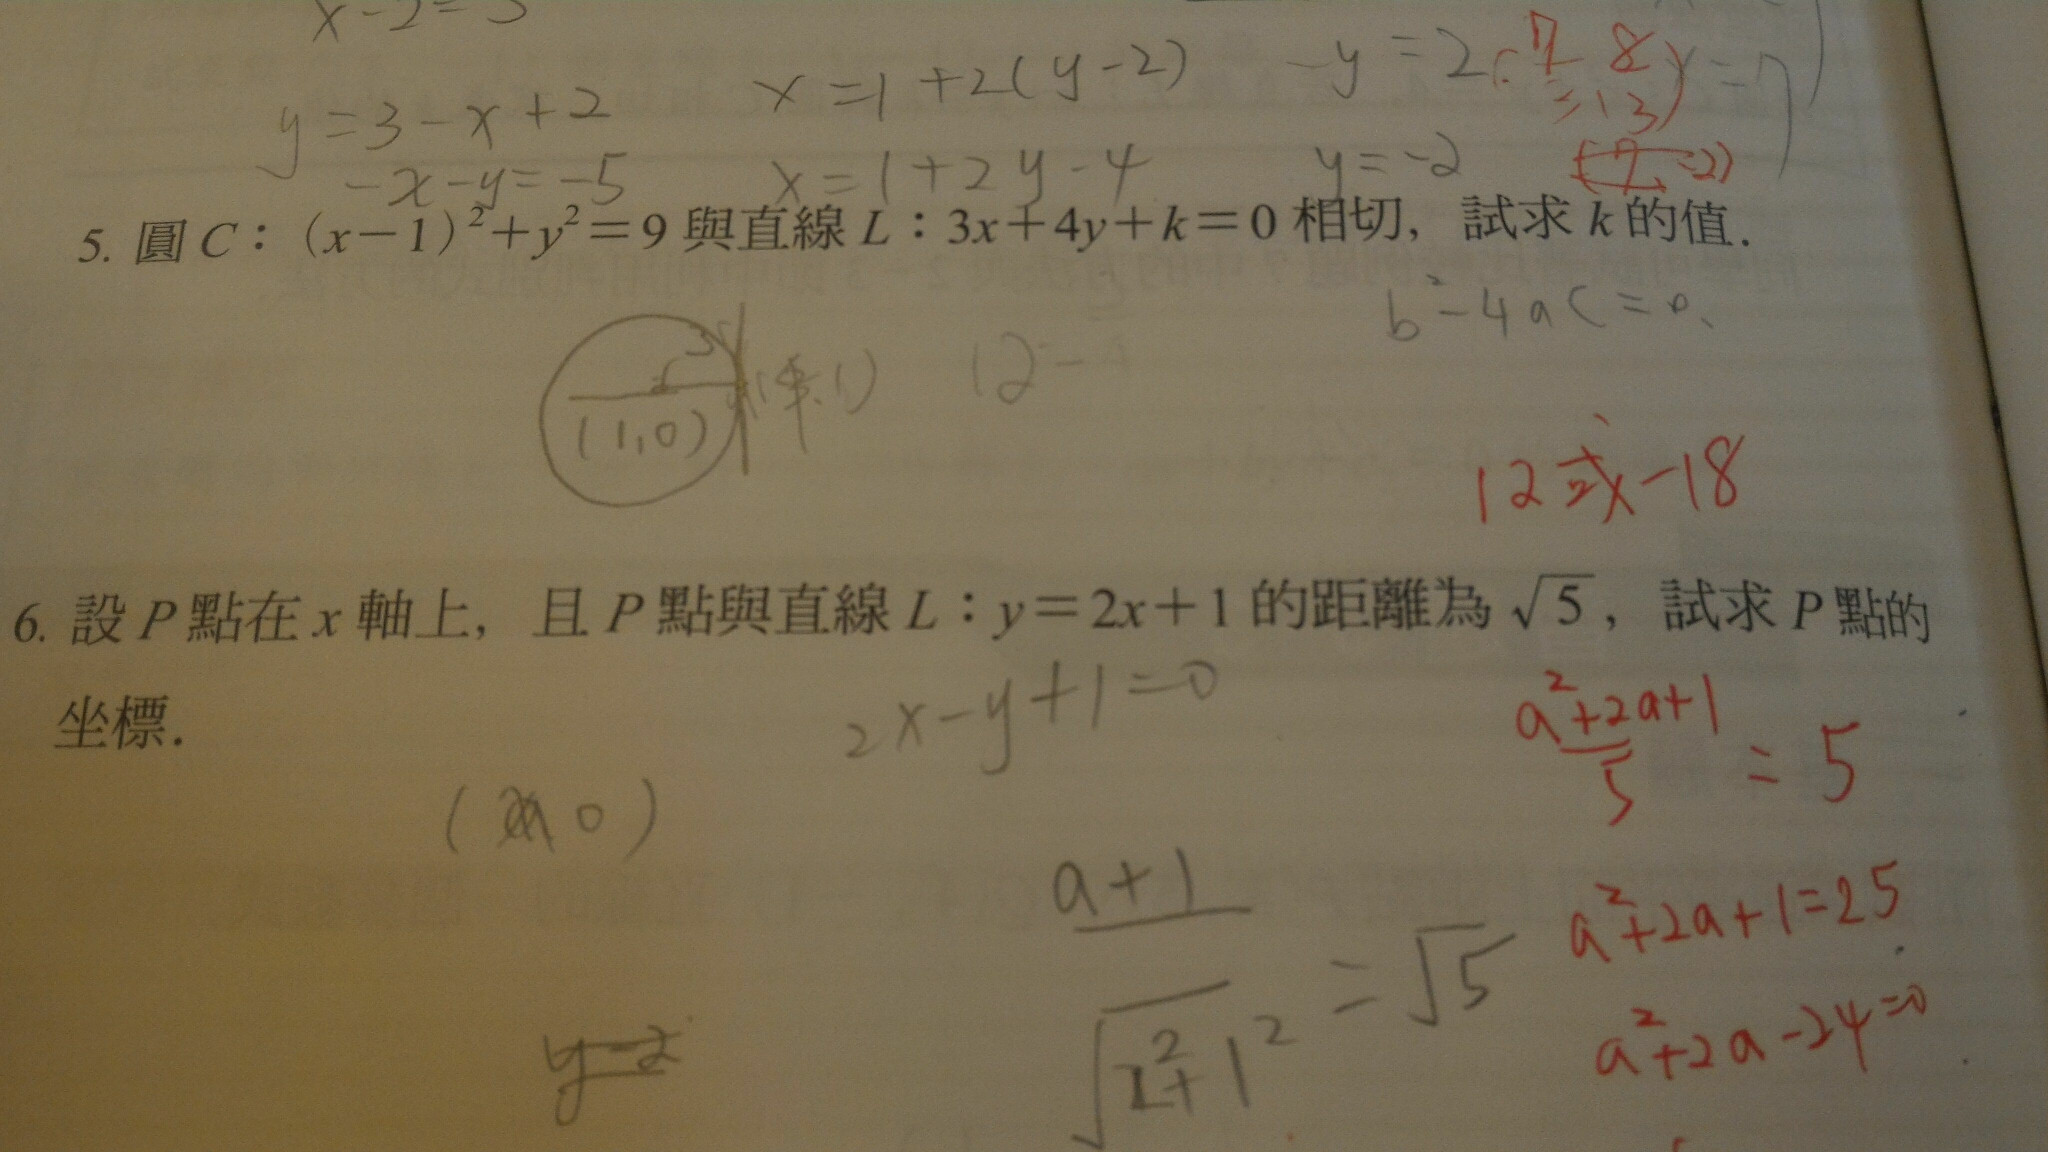 x-2=3
y=3-x+2
-x-y=-5
x=1+2(y-2)
x=1+2y-4
-y=2
y=-2
5. 圓 C：(x－1)²＋y²＝9 與直線 L：3x＋4y＋k＝0 相切，試求 k 的值．
b²-4ac=0
(1,0)
12或-18
6. 設 P 點在 x 軸上，且 P 點與直線 L：y＝2x＋1 的距離為 √5，試求 P 點的
坐標．
2x-y+1=0
a²+2a+1
5
= 5
a+1
= √5
a²+2a+1=25
a²+2a-24=0
y=2